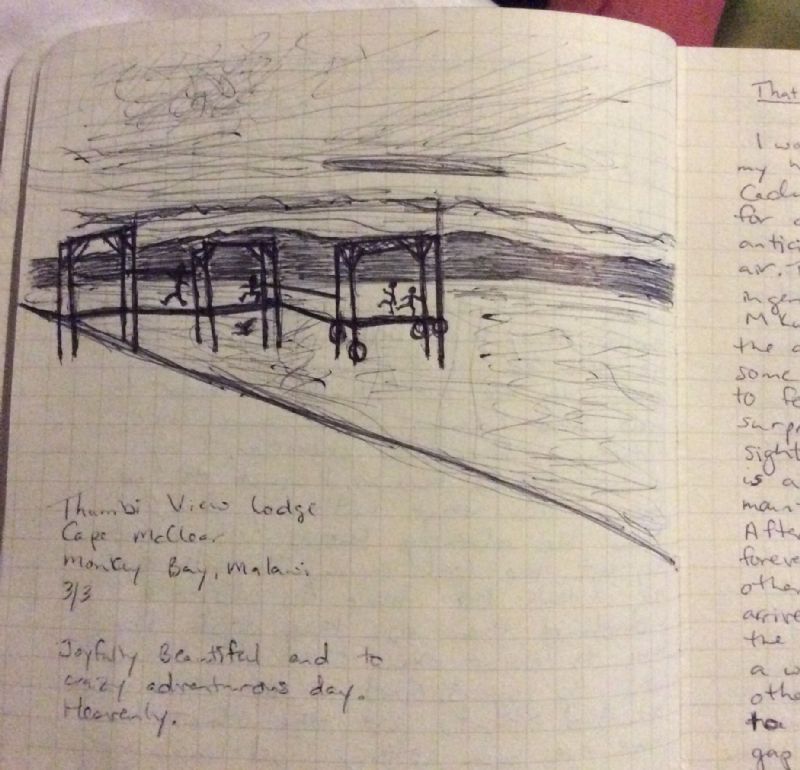 Thumbi View Lodge
Cape McClear
Monkey Bay, Malawi
3/3
Joyfully Beautiful and to
crazy adventurous day.
Heavenly.
That
I wo
my h
Cadu
for a
antici
air.
inger
Mku
the a
some
to fo
surpr
sight
is a
main
After
foreve
othe
arrive
the
a w
othe
to
gap